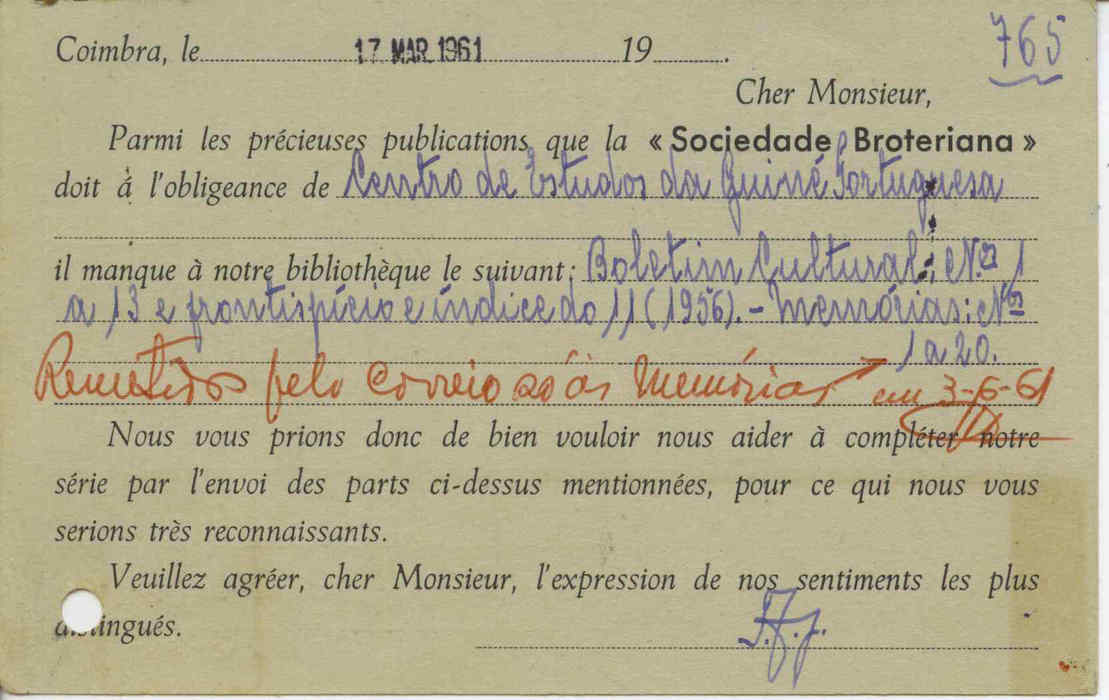 765
Coimbra, le 17 MAR. 1961 19 .
Cher Monsieur,
Parmi les précieuses publications que la « Sociedade Broteriana »
doit à l'obligeance de Centro de Estudos da Guiné Portuguesa
il manque à notre bibliothèque le suivant: Boletim Cultural: Nos 1
a 13 e frontispício e índice do 11 (1956). - Memórias: Nos
1 a 20.
Remetidos pelo correio só as Memórias em 3-6-61
Nous vous prions donc de bien vouloir nous aider à compléter notre
série par l'envoi des parts ci-dessus mentionnées, pour ce qui nous vous
serions très reconnaissants.
Veuillez agréer, cher Monsieur, l'expression de nos sentiments les plus
distingués.